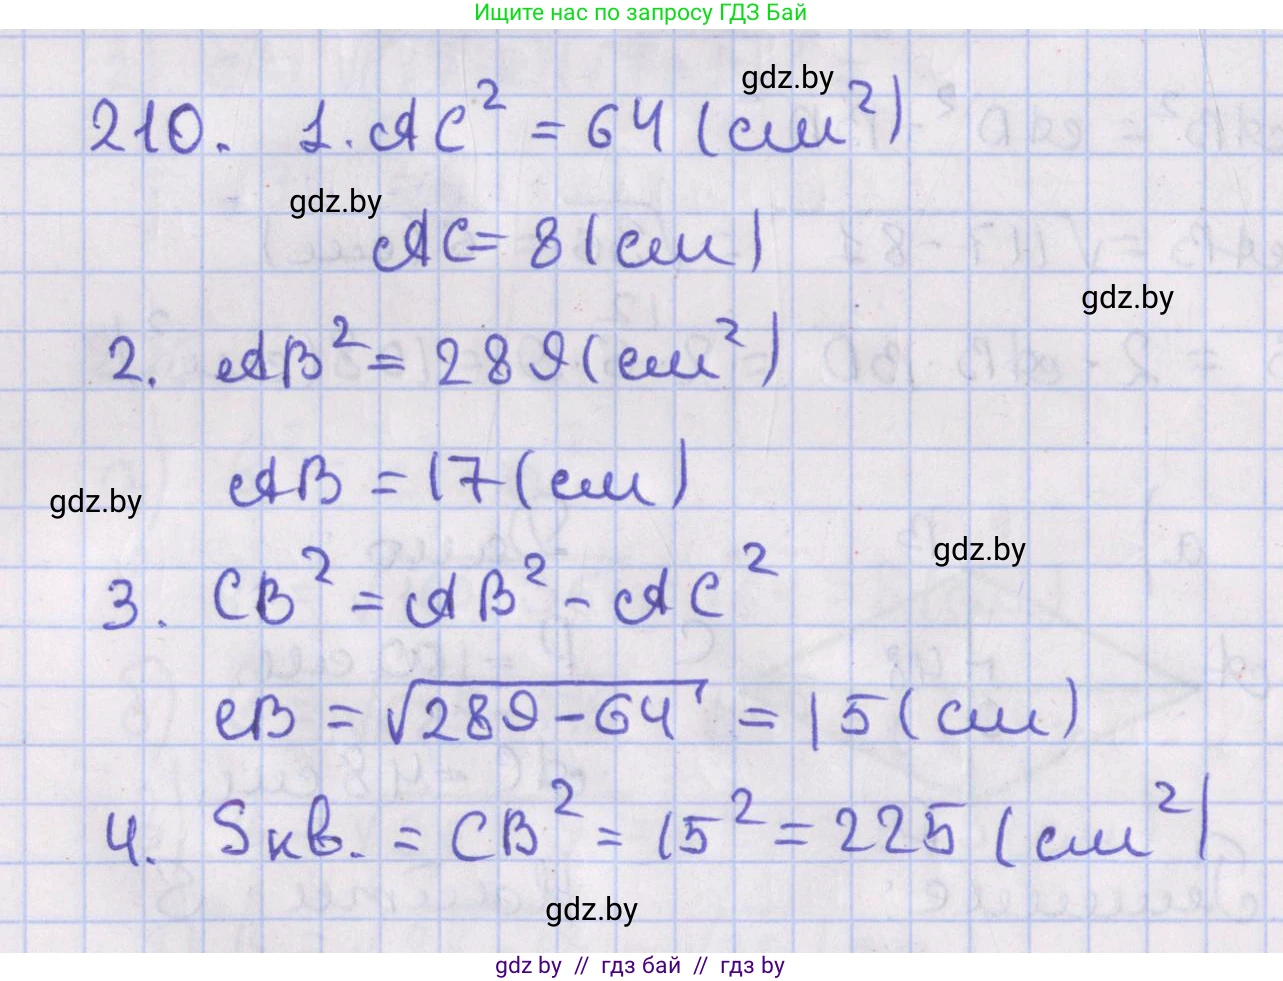 Ищите нас по запросу ГДЗ Бай
gdz.by
210. 1. AC² = 64 (см²)
gdz.by
AC = 8 (см)
gdz.by
2. AB² = 289 (см²)
AB = 17 (см)
gdz.by
gdz.by
3. CB² = AB² - AC²
CB = √289 - 64 = 15 (см)
4. Sкв. = CB² = 15² = 225 (см²)
gdz.by
gdz by // гдз бай // гдз by